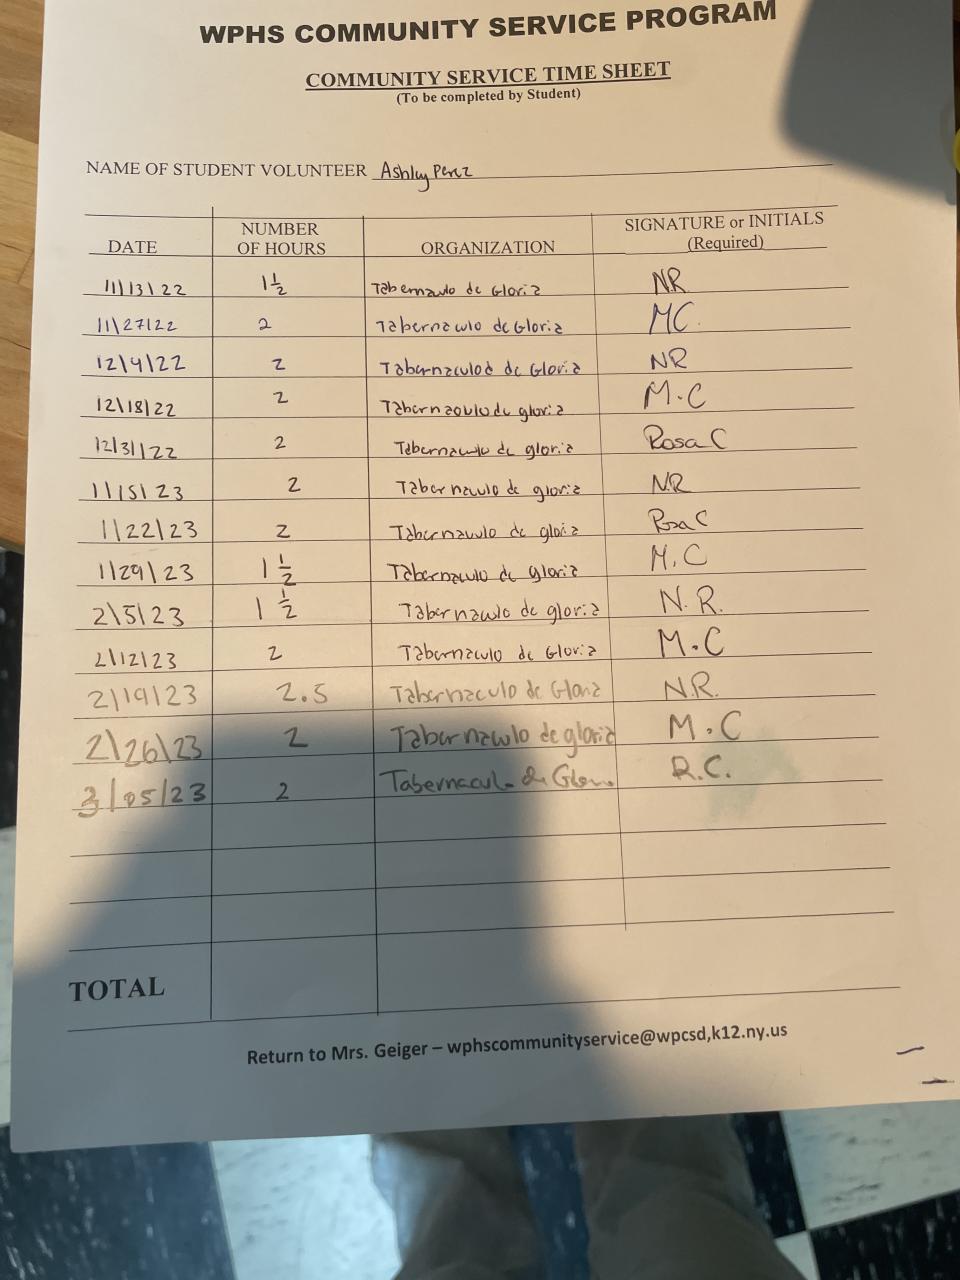 WPHS COMMUNITY SERVICE PROGRAM
COMMUNITY SERVICE TIME SHEET
(To be completed by Student)
NAME OF STUDENT VOLUNTEER Ashly Perez
DATE NUMBER OF HOURS ORGANIZATION SIGNATURE or INITIALS (Required)
11/13/22 1 1/2 Tabernaulo de Gloria NR
11/27/22 2 Tabernaculo de Gloria MC
12/4/22 2 Tabernaculod de Gloria NR
12/18/22 2 Tabernaculo de gloria M.C
12/31/22 2 Tabernaculo de gloria Rosa C
1/15/23 2 Tabernaculo de gloria N.R
1/22/23 2 Tabernaculo de gloria Rosa C
1/29/23 1 1/2 Tabernaculo de gloria M.C
2/5/23 1 1/2 Tabernaculo de gloria N.R.
2/12/23 2 Tabernaculo de Gloria M.C
2/19/23 2.5 Tabernaculo de Gloria N.R.
2/26/23 2 Tabernaculo de gloria M.C
3/05/23 2 Tabernaculo de R.C.
TOTAL
Return to Mrs. Geiger – wphscommunityservice@wpcsd,k12.ny.us